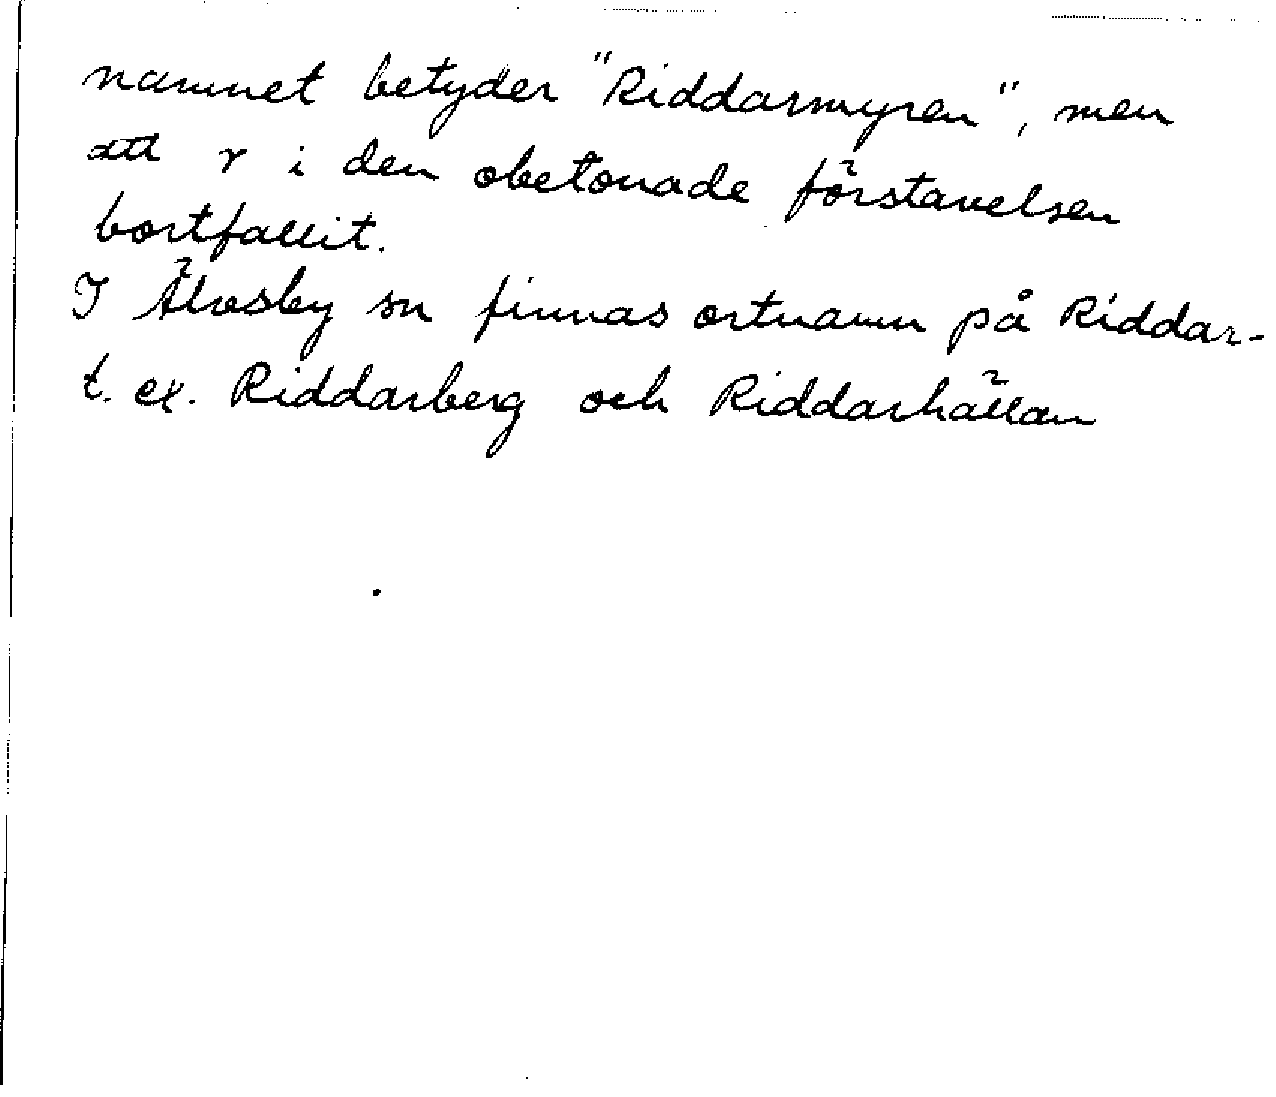 namnet betyder "Riddarmyren", men
att r i den obetonade förstavelsen
bortfallit.
I Älvsby sn finnas ortnamn på Riddar-
t. ex. Riddarberg och Riddarhällan